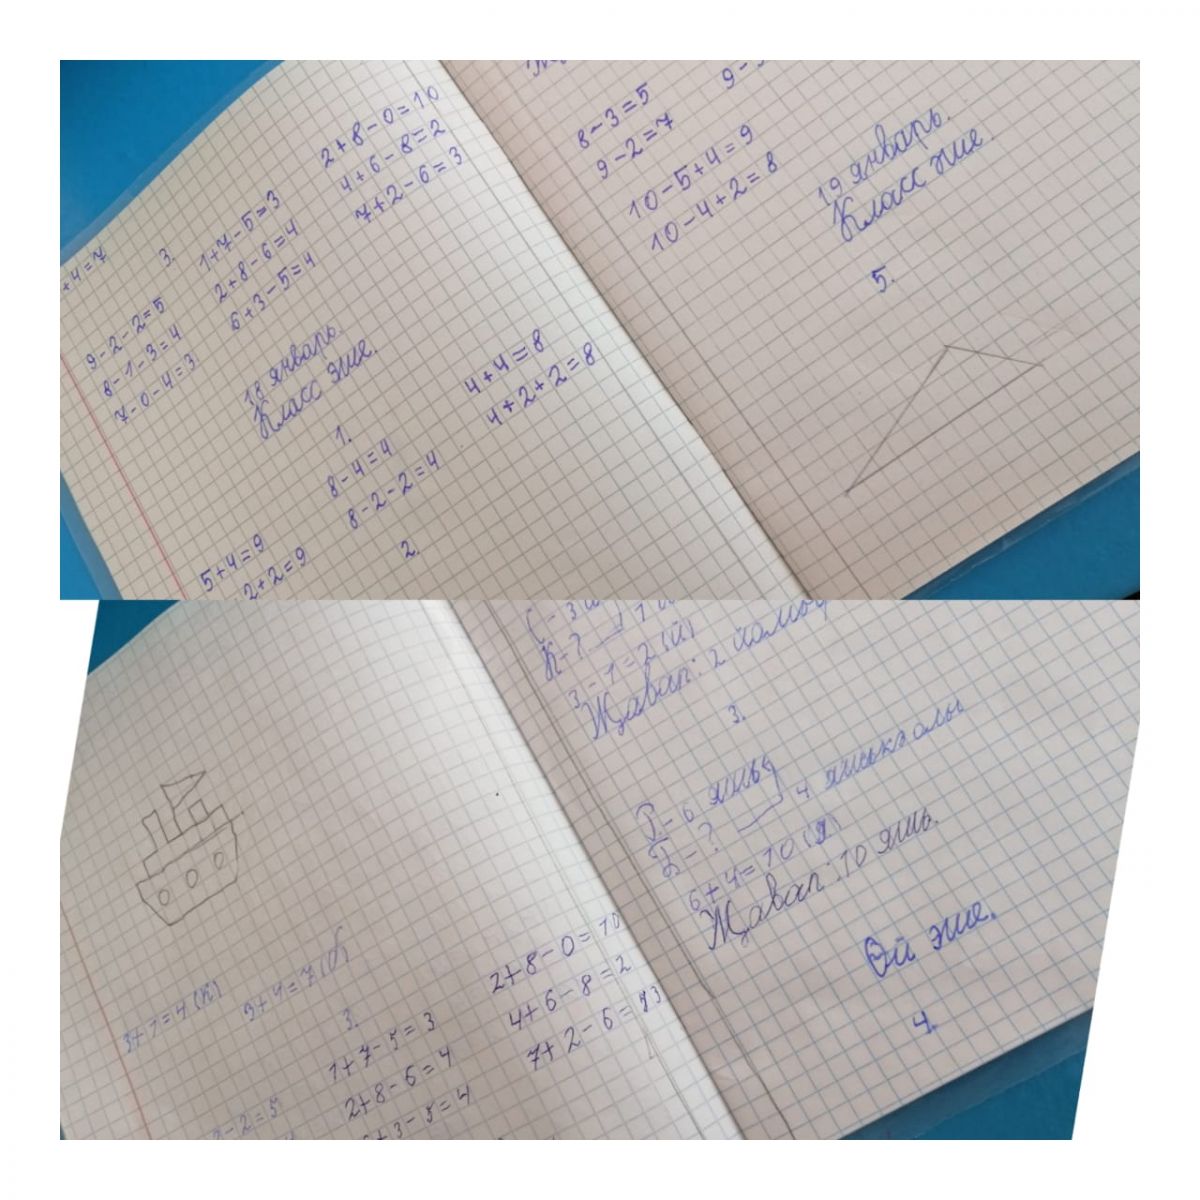 +4=7
3.
9-2-2=5
8-1-3=4
7-0-4=3
1+7-5=3
2+8-6=4
6+3-5=4
2+8-0=10
4+6-8=2
7+2-6=3
18 январь.
Класс эше.
1.
5+4=9
2+2=9
8-4=4
8-2-2=4
4+4=8
4+2+2=8
2.
8-3=5
9-2=7
9-
10-5+4=9
10-4+2=8
19 январь.
Класс эше.
5.
3+1=4 (к)
3+4=7
3.
-2=5
1+7-5=3
2+8-6=4
+3-5=4
2+8-0=10
4+6-8=2
7+2-6=3
К-?
3-1=2 (й)
Җавап: 2
3.
6 яшь
-? 4 яшькә олы
6+4=10 (я)
Җавап: 10 яшь.
Өй эше.
4.